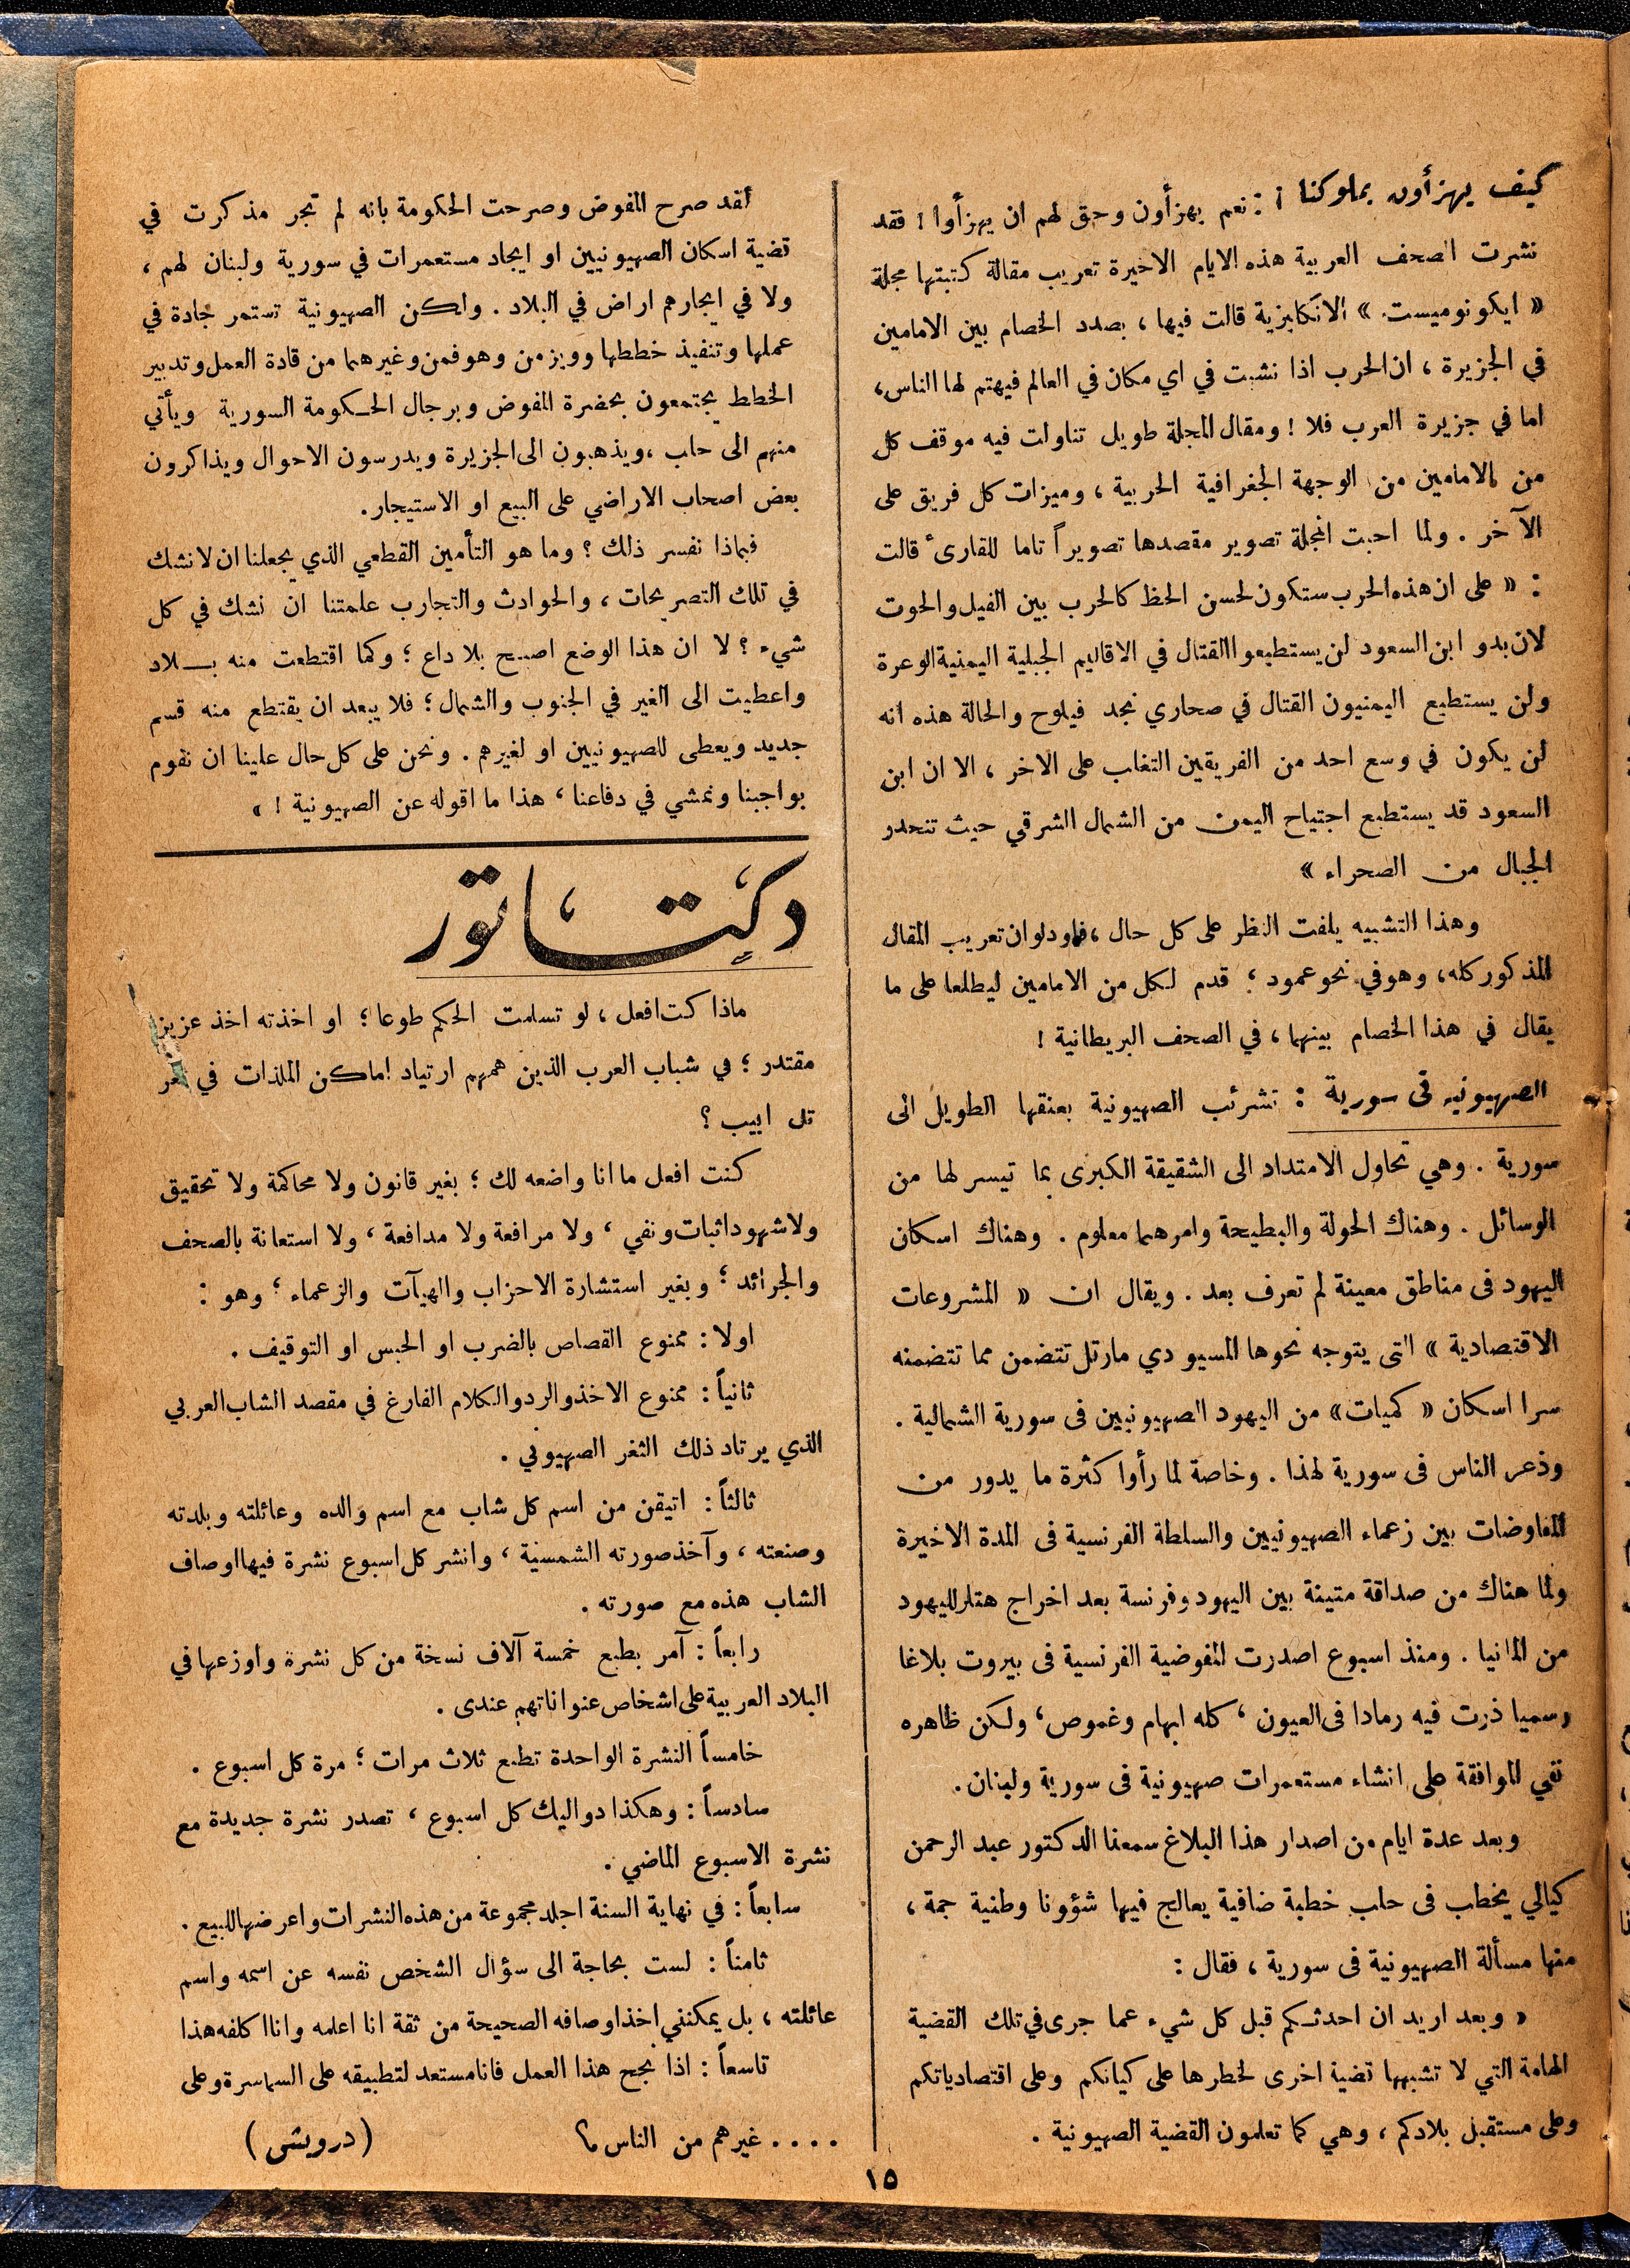 كيف يهزأون بملوكنا ! : نعم يهزأون وحق لهم ان يهزأوا ! فقد
نشرت الصحف العربية هذه الايام الاخيرة تعريب مقالة كتبتها مجلة
« ايكونوميست » الانكليزية قالت فيها ، بصدد الخصام بين الامامين
في الجزيرة ، ان الحرب اذا نشبت في اي مكان في العالم فيهتم لها الناس ،
اما في جزيرة العرب فلا ! ومقال المجلة طويل تناولت فيه موقف كل
من الامامين من الوجهة الجغرافية الحربية ، وميزات كل فريق على
الآخر . ولما احبت المجلة تصوير مقصدها تصويراً تاما للقارىء قالت
: « على ان هذه الحرب ستكون لحسن الحظ كالحرب بين الفيل والحوت
لان بدو ابن السعود لن يستطيعوا القتال في الاقاليم الجبلية اليمنية الوعرة
ولن يستطيع اليمنيون القتال في صحاري نجد فيلوح والحالة هذه انه
لن يكون في وسع احد من الفريقين التغلب على الاخر ، الا ان ابن
السعود قد يستطيع اجتياح اليمن من الشمال الشرقي حيث تنحدر
الجبال من الصحراء »
وهذا التشبيه يلفت النظر على كل حال ، فلو دلوان تعريب المقال
المذكور كله ، وهو في نحو عمود ؛ قدم لكل من الامامين ليطلعا على ما
يقال في هذا الخصام بينهما ، في الصحف البريطانية !
الصهيونية فى سورية : تشرئب الصهيونية بعنقها الطويل الى
سورية . وهي تحاول الامتداد الى الشقيقة الكبرى بما تيسر لها من
الوسائل . وهناك الحولة والبطيحة وامرهما معلوم . وهناك اسكان
اليهود فى مناطق معينة لم تعرف بعد . ويقال ان « المشروعات
الاقتصادية » التى يتوجه نحوها المسيو دي مارتل تتضمن مما تتضمنه
سرا اسكان « كميات » من اليهود الصهيونيين فى سورية الشمالية .
وذعر الناس فى سورية لهذا . وخاصة لما رأوا كثرة ما يدور من
المفاوضات بين زعماء الصهيونيين والسلطة الفرنسية فى المدة الاخيرة
ولما هناك من صداقة متينة بين اليهود وفرنسة بعد اخراج هتلر لليهود
من المانيا . ومنذ اسبوع اصدرت المفوضية الفرنسية فى بيروت بلاغا
رسميا ذرت فيه رمادا فى العيون ، كله ابهام وغموص ، ولكن ظاهره
نفي الموافقة على انشاء مستعمرات صهيونية فى سورية ولبنان .
وبعد عدة ايام من اصدار هذا البلاغ سمعنا الدكتور عبد الرحمن
كيالي يخطب فى حلب خطبة ضافية يعالج فيها شؤونا وطنية جمة ،
منها مسألة الصهيونية فى سورية ، فقال :
« وبعد اريد ان احدثكم قبل كل شيء عما جرى في تلك القضية
الهامة التي لا تشبهها قضية اخرى لخطرها على كيانكم وعلى اقتصادياتكم
وعلى مستقبل بلادكم ، وهي كما تعلمون القضية الصهيونية .
لقد صرح المفوض وصرحت الحكومة بانه لم تجر مذكرت في
قضية اسكان الصهيونيين او ايجاد مستعمرات في سورية ولبنان لهم ،
ولا في ايجارهم اراض في البلاد . ولكن الصهيونية تستمر جادة في
عملها وتنفيذ خططها وويزمن وهوفمن وغيرهما من قادة العمل وتدبير
الخطط يجتمعون بحضرة المفوض وبرجال الحكومة السورية ويأتي
منهم الى حلب ، ويذهبون الى الجزيرة ويدرسون الاحوال ويذاكرون
بعض اصحاب الاراضي على البيع او الاستيجار .
فبماذا نفسر ذلك ؟ وما هو التأمين القطعي الذي يجعلنا ان لا نشك
في تلك التصريحات ، والحوادث والتجارب علمتنا ان نشك في كل
شيء ؟ لا ان هذا الوضع اصبح بلا داع ؛ وكما اقتطعت منه بلاد
واعطيت الى الغير في الجنوب والشمال ؛ فلا يبعد ان يقتطع منه قسم
جديد ويعطى للصهيونيين او لغيرهم . ونحن على كل حال علينا ان نقوم
بواجبنا ونمشي في دفاعنا ، هذا ما اقوله عن الصهيونية ! »
دكتاتور
ماذا كنت افعل ، لو تسلمت الحكم طوعا ؛ او اخذته اخذ عزيز
مقتدر ؛ في شباب العرب الذين همهم ارتياد اماكن الملذات في
تل ابيب ؟
كنت افعل ما انا واضعه لك ؛ بغير قانون ولا محاكمة ولا تحقيق
ولا شهود اثبات ونفي ، ولا مرافعة ولا مدافعة ، ولا استعانة بالصحف
والجرائد ؛ وبغير استشارة الاحزاب والهيآت والزعماء ؛ وهو :
اولا : ممنوع القصاص بالضرب او الحبس او التوقيف .
ثانياً : ممنوع الاخذ والرد والكلام الفارغ في مقصد الشاب العربي
الذي يرتاد ذلك الثغر الصهيوني .
ثالثاً : اتيقن من اسم كل شاب مع اسم والده وعائلته وبلدته
وصنعته ، وآخذ صورته الشمسية ، وانشر كل اسبوع نشرة فيها اوصاف
الشاب هذه مع صورته .
رابعاً : آمر بطبع خمسة آلاف نسخة من كل نشرة واوزعها في
البلاد العربية على اشخاص عنواناتهم عندى .
خامساً النشرة الواحدة تطبع ثلاث مرات ؛ مرة كل اسبوع .
سادساً : وهكذا دواليك كل اسبوع ، تصدر نشرة جديدة مع
نشرة الاسبوع الماضي .
سابعاً : في نهاية السنة اجلد مجموعة من هذه النشرات واعرضها للبيع .
ثامناً : لست بحاجة الى سؤال الشخص نفسه عن اسمه واسم
عائلته ، بل يمكنني اخذ اوصافه الصحيحة من ثقة انا اعلمه وانا اكلفه هذا
تاسعاً : اذا نجح هذا العمل فانا مستعد لتطبيقه على السماسرة وعلى
.... غيرهم من الناس ؟ (درويش)
١٥